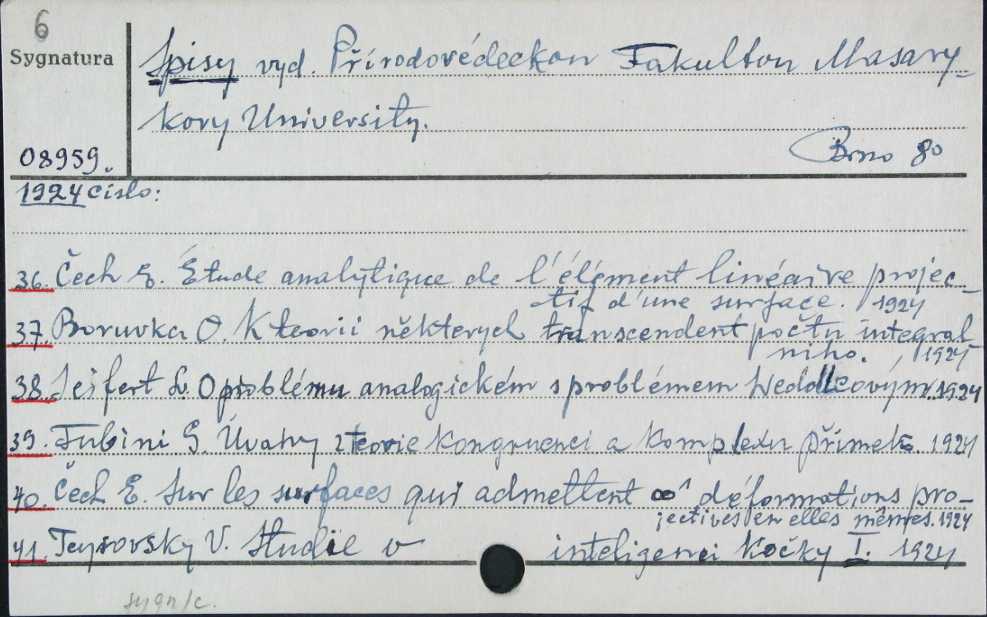 6
Sygnatura
Spisy vyd. Přírodovédeckon Fakulton Masary-
kovy University.
Brno 80
08959.
1924 cislo:
36. Čech E. Étude analytique de l'élément linéaire projec-
tif d'une surface. 1924
37. Boruvka O. K teorii některych transcendent počtu integral
niho. 1924
38. Seifert L. O problému analogickém s problémem Weddleovým. 1924
39. Fubini G. Úvahy z teorie kongruenci a komplexu přimek. 1924
40. Čech E. Sur les surfaces qui admettent ∞¹ déformations pro-
jectives en elles mêmes. 1924
41. Teyrovsky V. Studie o inteligenci kočky I. 1924
sygn/c.